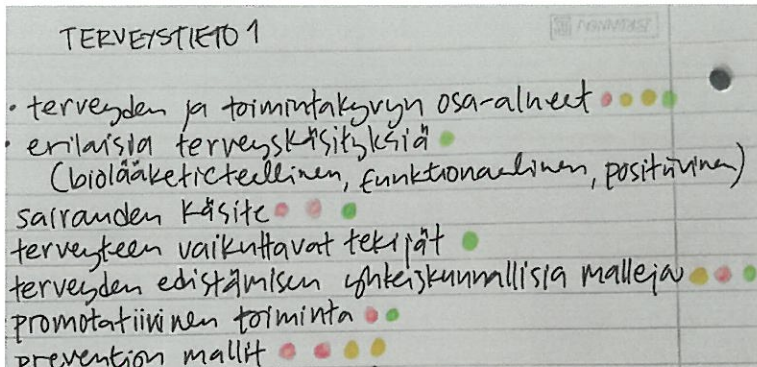 TERVEYSTIETO 1
• terveyden ja toimintakyvyn osa-alueet
• erilaisia terveyskäsityksiä
(biolääketieteellinen, funktionaalinen, positiivinen)
sairauden käsite
terveyteen vaikuttavat tekijät
terveyden edistämisen yhteiskunnallisia malleja
promotatiivinen toiminta
prevention mallit